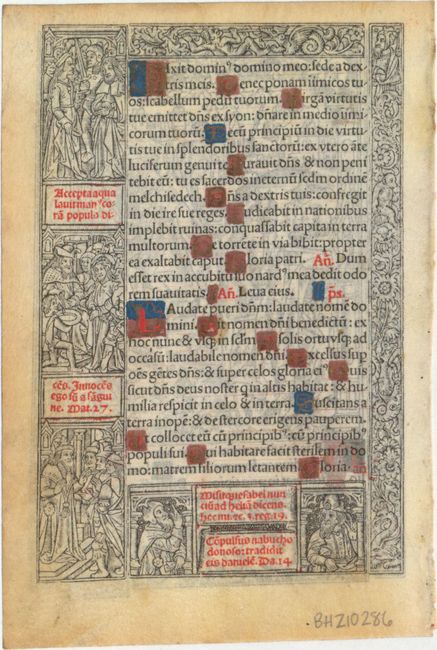 Dixit domin⁹ domino meo: sede a dex
tris meis. Donec ponam inimicos tu
os: scabellum pedū tuorum. Uirga virtutis
tue emittet dn̄s ex syon: dn̄are in medio inimi
corum tuorū. Tecū principiū in die virtu
tis tue in splendoribus sanctorū: ex vtero ante
luciferum genui te. Jurauit dn̄s & non peni
tebit eū: tu es sacerdos ineternū scd̄m ordinē
melchisedech. Dn̄s a dextris tuis: confregit
in die ire sue reges. Judicabit in nationibus
implebit ruinas: conquassabit capita in terra
multorum. De torrēte in via bibit: propter
ea exaltabit caput. Gloria patri. Añ. Dum
esset rex in accubitu suo nard⁹ mea dedit odo
rem suauitatis. Añ. Leua eius. p̄s.
Laudate pueri dn̄m: laudate nomē do
mini. Sit nomen dn̄i benedictū: ex
hoc nunc & vsq; in scl̄m. A solis ortu vsq; ad
occasū: laudabile nomen dn̄i. Excelsus sup
oēs gētes dn̄s: & super celos gloria ei⁹. Quis
sicut dn̄s deus noster q in altis habitat: & hu
milia respicit in celo & in terra. Suscitans a
terra inopē: & de stercore erigens pauperem.
Ut collocet eū cū principib⁹: cū principib⁹
populi sui. Qui habitare facit sterilem in do
mo: matrem filiorum letantem. Gloria. añ
Accepta aqua
lauit man⁹ co-
rā populo di-
cēs. Innocēs
ego sū a sāgui
ne. Mat. 27.
Misitque Jesabel nun
ciū ad heliā dicens.
hec mi
3. reg. 19.
Cōpulsus nabucho
donosor tradidit
eis danielē. Da. 14
BHZ10286